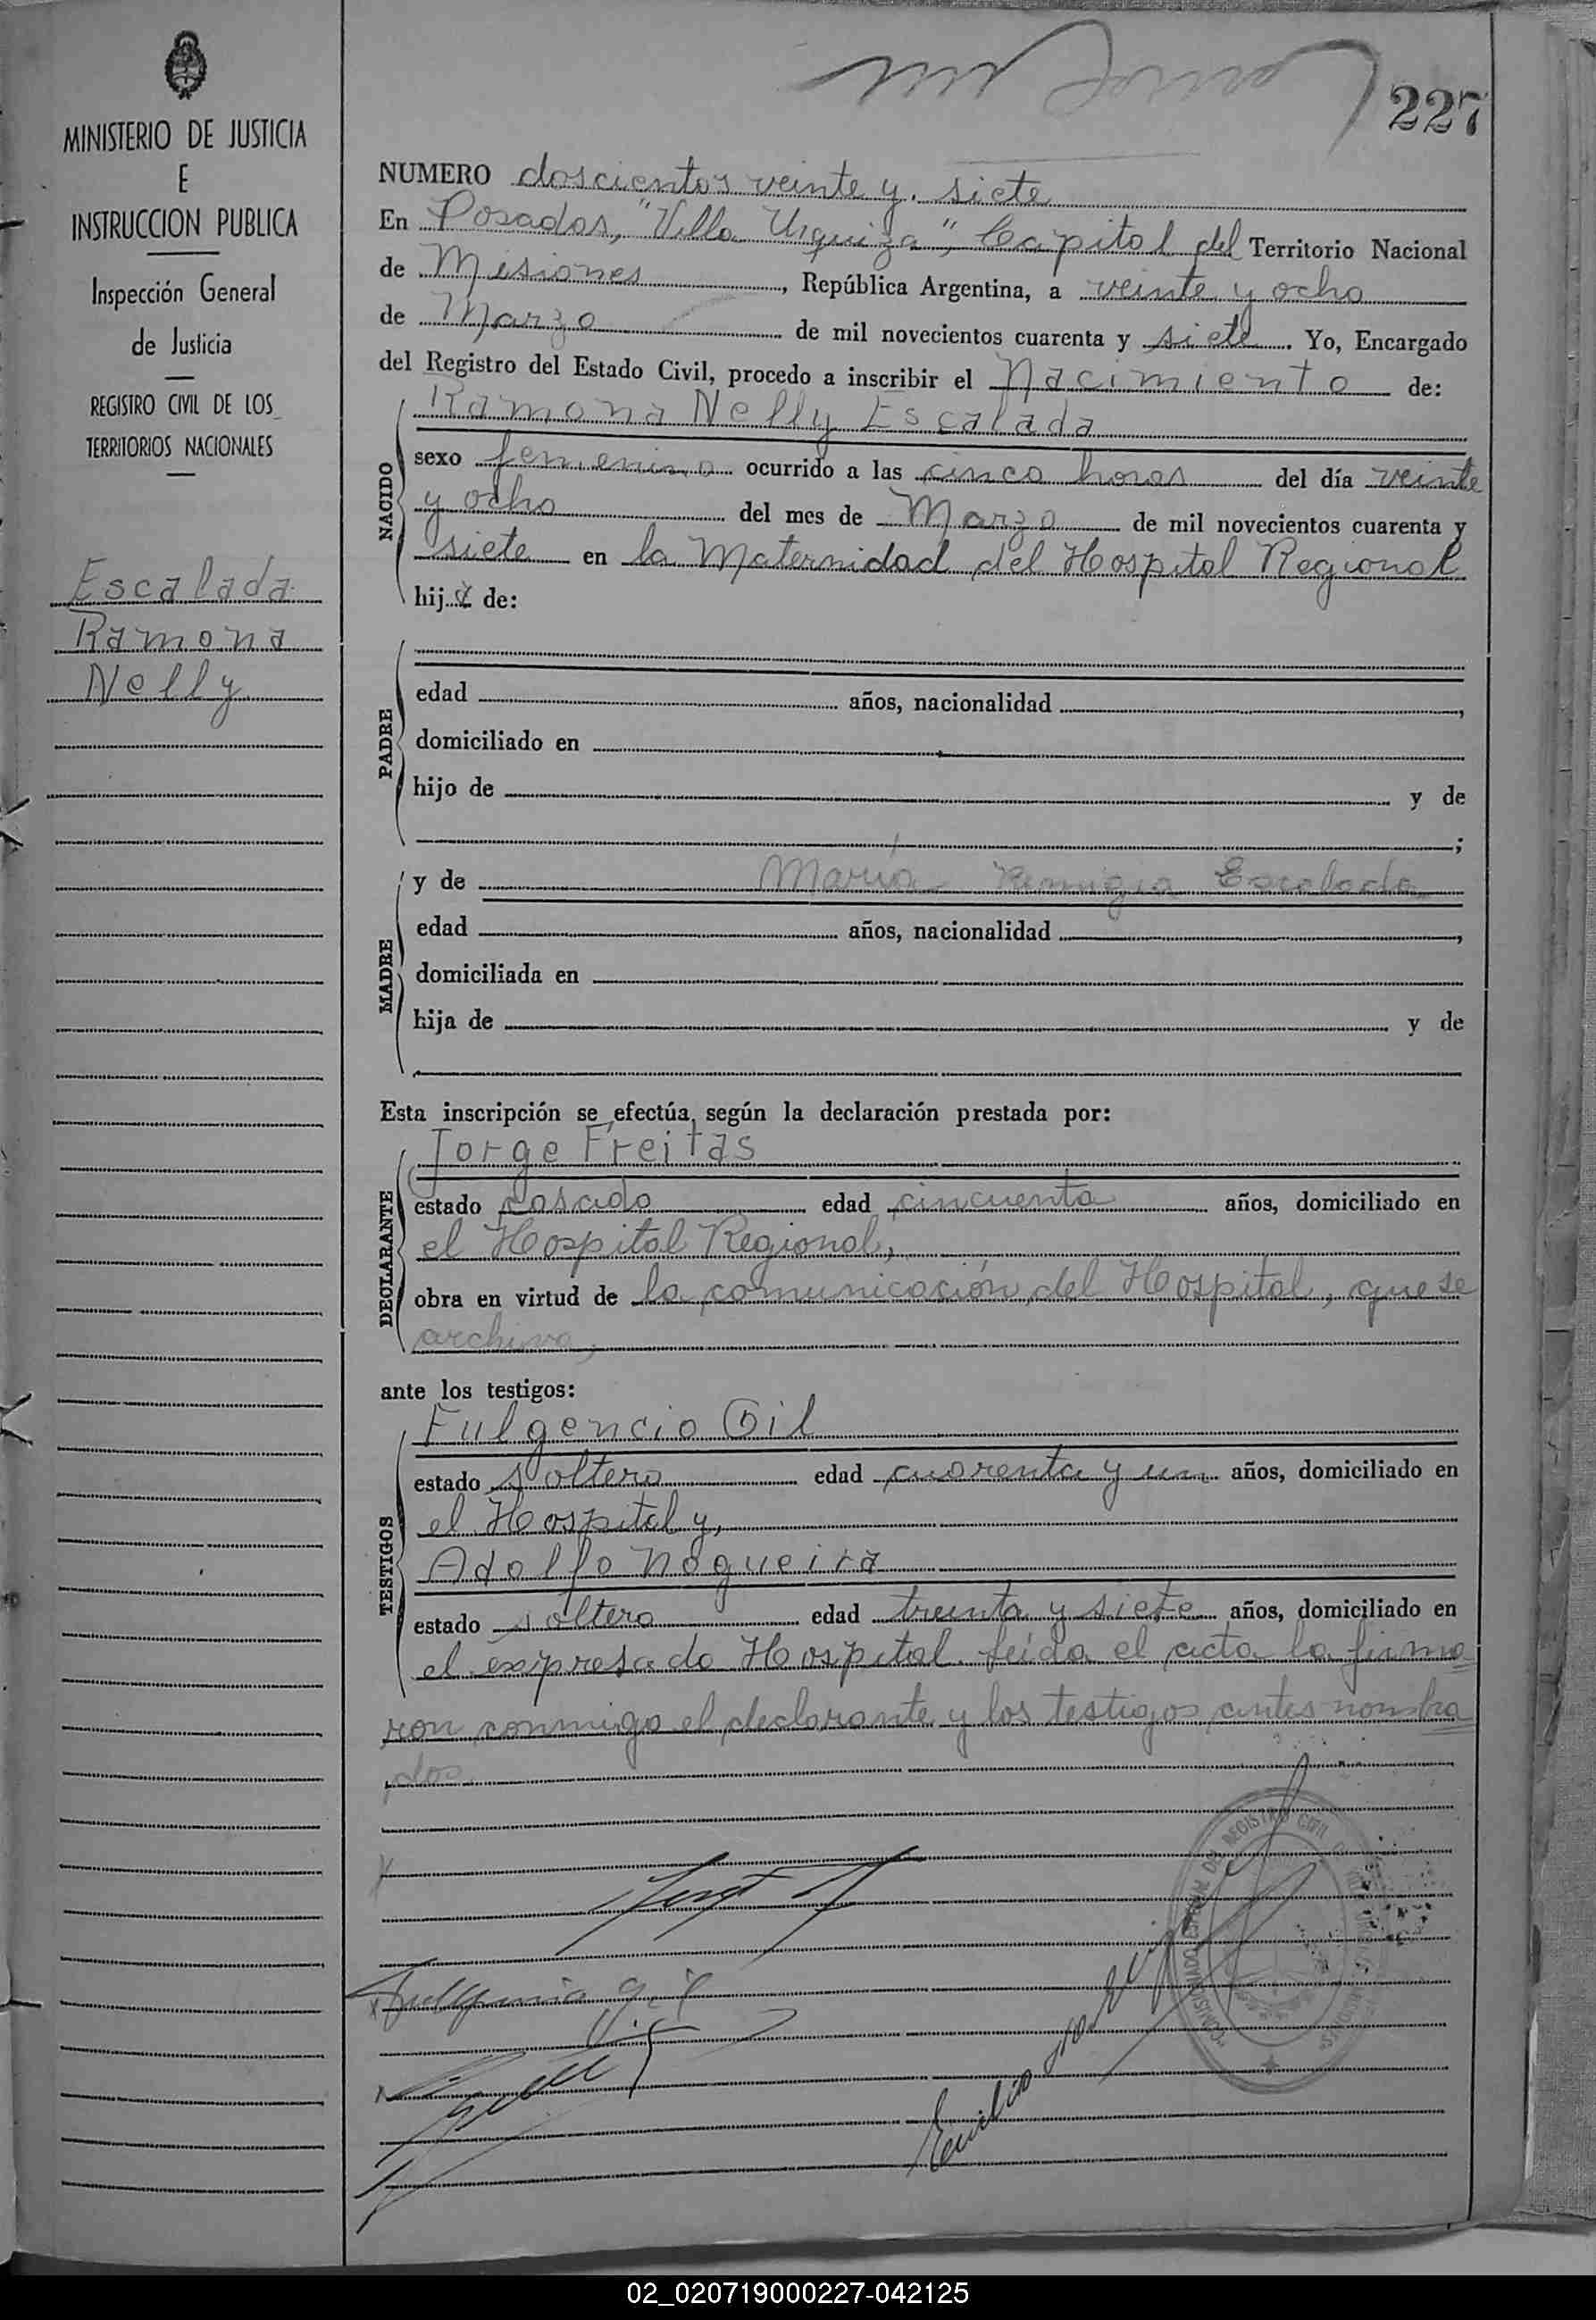 227
MINISTERIO DE JUSTICIA
E
INSTRUCCION PUBLICA
Inspección General
de Justicia
REGISTRO CIVIL DE LOS
TERRITORIOS NACIONALES
Escalada
Ramona
Nelly
NUMERO doscientos veinte y siete
En Posadas, "Villa Urquiza", Capital del Territorio Nacional
de Misiones, República Argentina, a veinte y ocho
de Marzo de mil novecientos cuarenta y siete. Yo, Encargado
del Registro del Estado Civil, procedo a inscribir el Nacimiento de:
Ramona Nelly Escalada
NACIDO
sexo femenino ocurrido a las cinco horas del día veinte
y ocho del mes de Marzo de mil novecientos cuarenta y
siete en la Maternidad del Hospital Regional
hija de:
PADRE
edad años, nacionalidad ,
domiciliado en
hijo de y de
;
y de María Remigia Escalada
MADRE
edad años, nacionalidad ,
domiciliada en
hija de y de
Esta inscripción se efectúa, según la declaración prestada por:
Jorge Freitas
DECLARANTE
estado casado edad cincuenta años, domiciliado en
el Hospital Regional,
obra en virtud de la comunicación del Hospital, que se
archiva,
ante los testigos:
Fulgencio Gil
TESTIGOS
estado soltero edad cuarenta y un años, domiciliado en
el Hospital y,
Adolfo Nogueira
estado soltero edad treinta y siete años, domiciliado en
el expresado Hospital. Leida el acta la firma
ron conmigo el declarante y los testigos antes nombra
dos.
Fulgencio Gil
Emilio
REGISTRO CIVIL
02_020719000227-042125